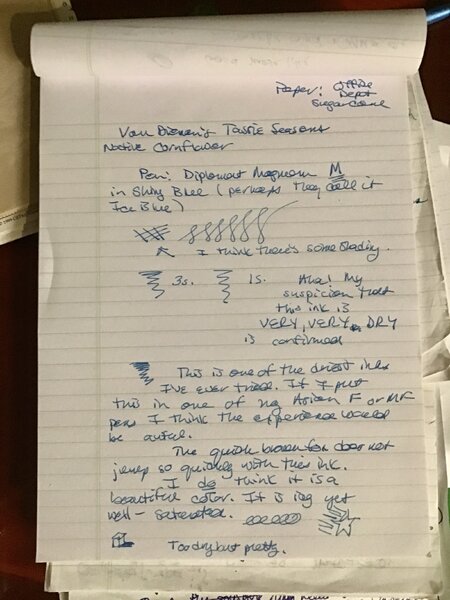 Paper: Office
Depot
Sugarcane
Van Diemen's Tassie Seasons
Native Cornflower
Pen: Diplomat Magnum M
in Shiny Blue (perhaps they call it
Ice Blue)
I think there's some shading.
3s. 1s. Aha! My
suspicion that
this ink is
VERY, VERY, DRY
is confirmed
This is one of the driest inks
I've ever tried. If I put
this in one of my Asian F or MF
pens I think the experience would
be awful.
The quick brown fox does not
jump so quickly with this ink.
I do think it is a
beautiful color. It is icy yet
well-saturated.
Too dry but pretty.